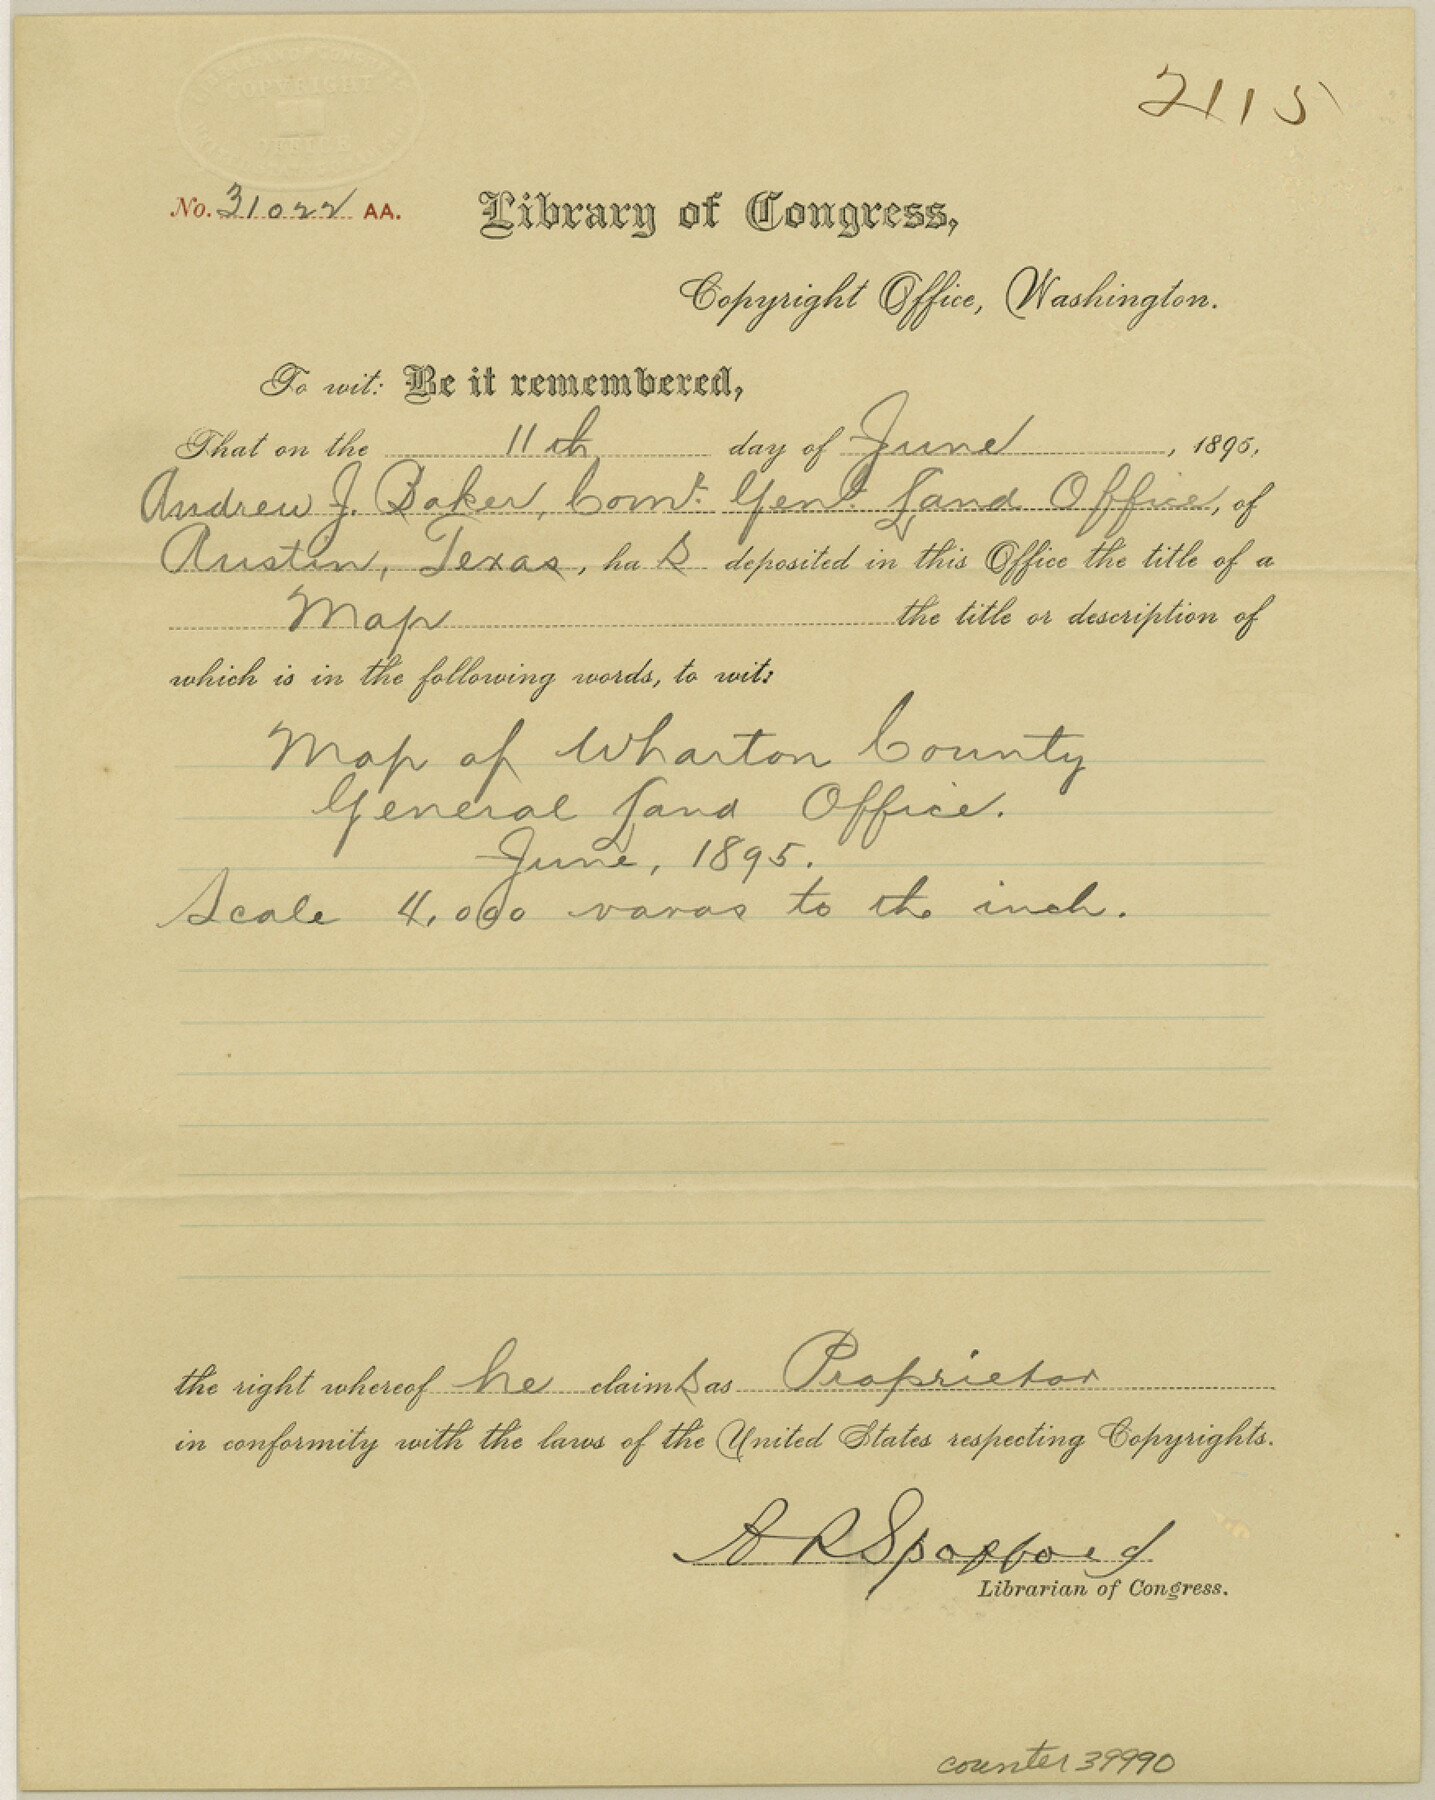 COPYRIGHT
OFFICE
2115
No. 31022 AA. Library of Congress,
Copyright Office, Washington.
To wit: Be it remembered,
That on the 11th day of June, 1895,
Andrew J. Baker, Comr. Genl. Land Office, of
Austin, Texas, ha s deposited in this Office the title of a
Map the title or description of
which is in the following words, to wit:
Map of Wharton County
General Land Office.
June, 1895.
Scale 4,000 varas to the inch.
the right whereof he claim s as Proprietor
in conformity with the laws of the United States respecting Copyrights.
A R Spofford
Librarian of Congress.
counter 39990